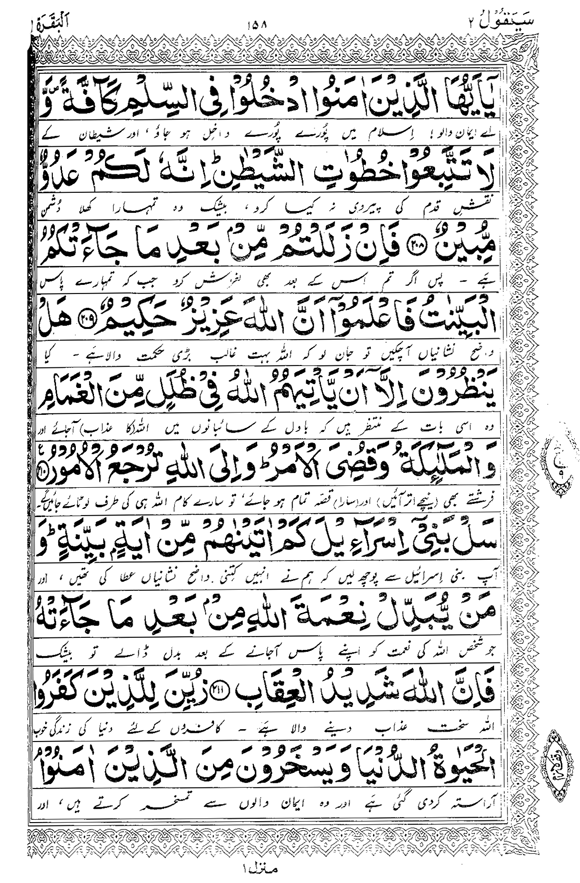 سَيَقُوۡلُ ٢ ١٥٨ اَلۡبَقَرَة
يٰۤاَيُّهَا الَّذِيۡنَ اٰمَنُوا ادۡخُلُوۡا فِى السِّلۡمِ كَآفَّةً ۪ وَّ
اے ایمان والو! اسلام میں پورے پورے داخل ہو جاؤ، اور شیطان کے
لَا تَتَّبِعُوۡا خُطُوٰتِ الشَّيۡطٰنِؕ اِنَّهٗ لَكُمۡ عَدُوٌّ
نقشِ قدم کی پیروی نہ کیا کرو، بیشک وہ تمہارا کھلا دُشمن
مُّبِيۡنٌ ﴿٢٠٨﴾ فَاِنۡ زَلَلۡتُمۡ مِّنۡۢ بَعۡدِ مَا جَآءَتۡكُمُ
ہے۔ پس اگر تم اس کے بعد بھی لغزش کرو جب کہ تمہارے پاس
الۡبَيِّنٰتُ فَاعۡلَمُوۡۤا اَنَّ اللّٰهَ عَزِيۡزٌ حَكِيۡمٌ ﴿٢٠٩﴾ هَلۡ
واضح نشانیاں آچکیں تو جان لو کہ اللہ بہت غالب بڑی حکمت والا ہے۔ کیا
يَنۡظُرُوۡنَ اِلَّاۤ اَنۡ يَّاۡتِيَهُمُ اللّٰهُ فِىۡ ظُلَلٍ مِّنَ الۡغَمَامِ
وہ اسی بات کے منتظر ہیں کہ بادل کے سائبانوں میں اللہ (کا عذاب) آجائے اور
وَالۡمَلٰٓئِكَةُ وَقُضِىَ الۡاَمۡرُؕ وَاِلَى اللّٰهِ تُرۡجَعُ الۡاُمُوۡرُ ﴿٢١٠﴾
فرشتے بھی (نیچے اتر آئیں) اور (سارا) قصہ تمام ہو جائے، تو سارے کام اللہ ہی کی طرف لوٹائے جائیں گے۔
سَلۡ بَنِىۡۤ اِسۡرَآءِيۡلَ كَمۡ اٰتَيۡنٰهُمۡ مِّنۡ اٰيَةٍۭ بَيِّنَةٍؕ وَ
آپ بنی اسرائیل سے پوچھ لیں کہ ہم نے انہیں کتنی واضح نشانیاں عطا کی تھیں، اور
مَنۡ يُّبَدِّلۡ نِعۡمَةَ اللّٰهِ مِنۡۢ بَعۡدِ مَا جَآءَتۡهُ
جو شخص اللہ کی نعمت کو اپنے پاس آجانے کے بعد بدل ڈالے تو بیشک
فَاِنَّ اللّٰهَ شَدِيۡدُ الۡعِقَابِ ﴿٢١١﴾ زُيِّنَ لِلَّذِيۡنَ كَفَرُوا
اللہ سخت عذاب دینے والا ہے۔ کافروں کے لئے دنیا کی زندگی خوب
الۡحَيٰوةُ الدُّنۡيَا وَيَسۡخَرُوۡنَ مِنَ الَّذِيۡنَ اٰمَنُوۡاۘ
آراستہ کردی گئی ہے اور وہ ایمان والوں سے تمسخر کرتے ہیں، اور
منزل ١